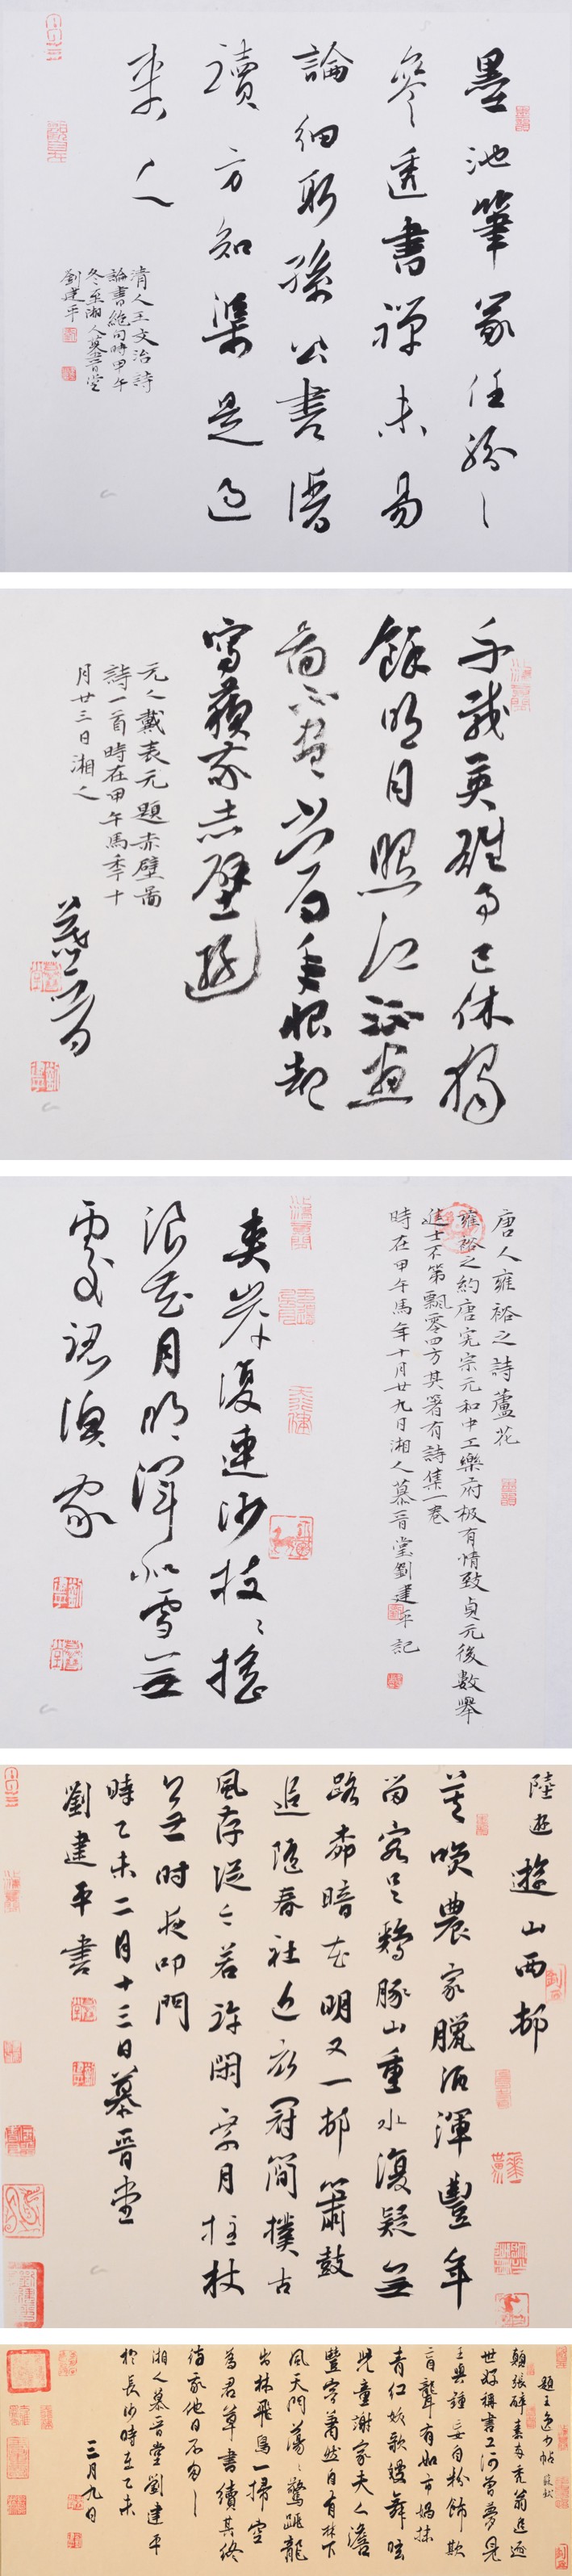 墨池筆冢任紛〻
參透書禪未易
論細取孫公書譜
讀方知渠是過
來人
清人王文治詩
論書絕句時甲午
冬至湘人慕晉堂
劉建平
千載英雄事已休獨
餘明月照江流畫
圖不盡當年恨却
寫蘇家赤壁遊
元人戴表元題赤壁圖
詩一首時在甲午馬年十
月廿三日湘人
慕晉
唐人雍裕之詩蘆花
雍裕之約唐憲宗元和中工樂府極有情致貞元後數舉
進士不第飄零四方其著有詩集一卷
時在甲午馬年十月廿九日湘人慕晉堂劉建平記
夾岸復連沙枝〻搖
浪花月明渾似雪無
處認漁家
陸遊遊山西邨
莫笑農家臘酒渾豐年
留客足鷄豚山重水復疑無
路柳暗花明又一邨簫鼓
追隨春社近衣冠簡樸古
風存從今若許閑乘月拄杖
無時夜叩門
時乙未二月十三日慕晉堂
劉建平書
題王逸少帖 蘇軾
顛張醉素兩禿翁追逐
世好稱書工何曾夢見
王與鍾妄自粉飾欺
盲聾有如市娼抹
青紅妖歌嫚舞眩
兒童謝家夫人澹
豐容蕭然自有林下
風天門蕩〻驚跳龍
出林飛鳥一掃空
為君草書續其終
待我他日不匆〻
湘人慕晉堂劉建平
於長沙時在乙未
三月九日